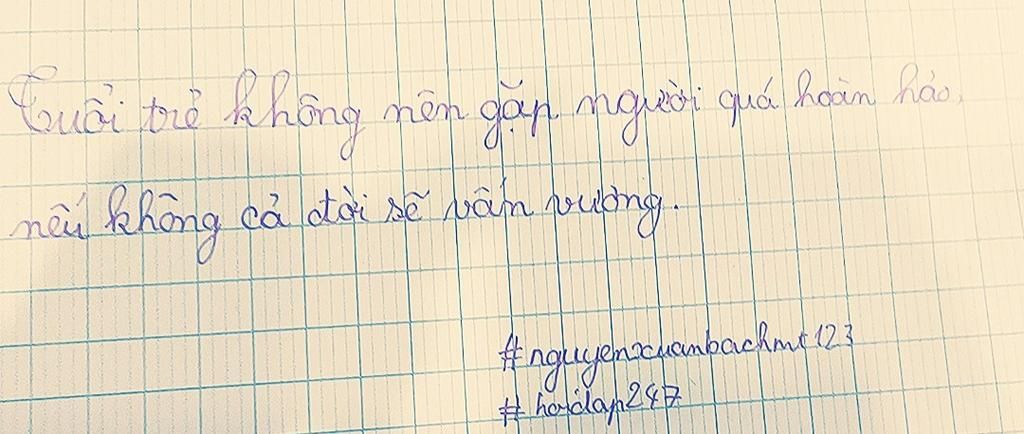 Tuổi trẻ không nên gặp người quá hoàn hảo,
nếu không cả đời sẽ vấn vương.
#nguyenxuanbachmt123
#hoidap247